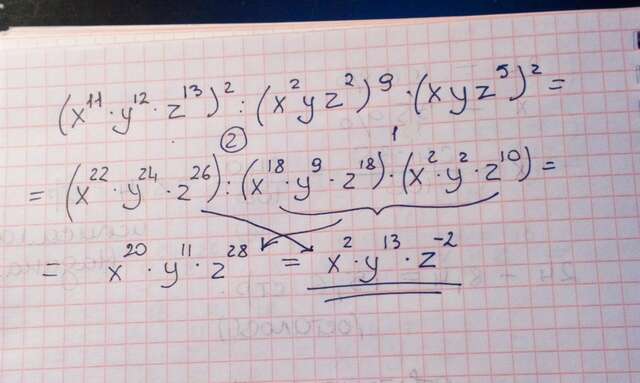 (x¹¹·y¹²·z¹³)²:(x²yz²)⁹·(xyz⁵)²=
② 1
=(x²²·y²⁴·z²⁶):(x¹⁸·y⁹·z¹⁸)·(x²·y²·z¹⁰)=
= x²⁰·y¹¹·z²⁸ = x²·y¹³·z⁻²